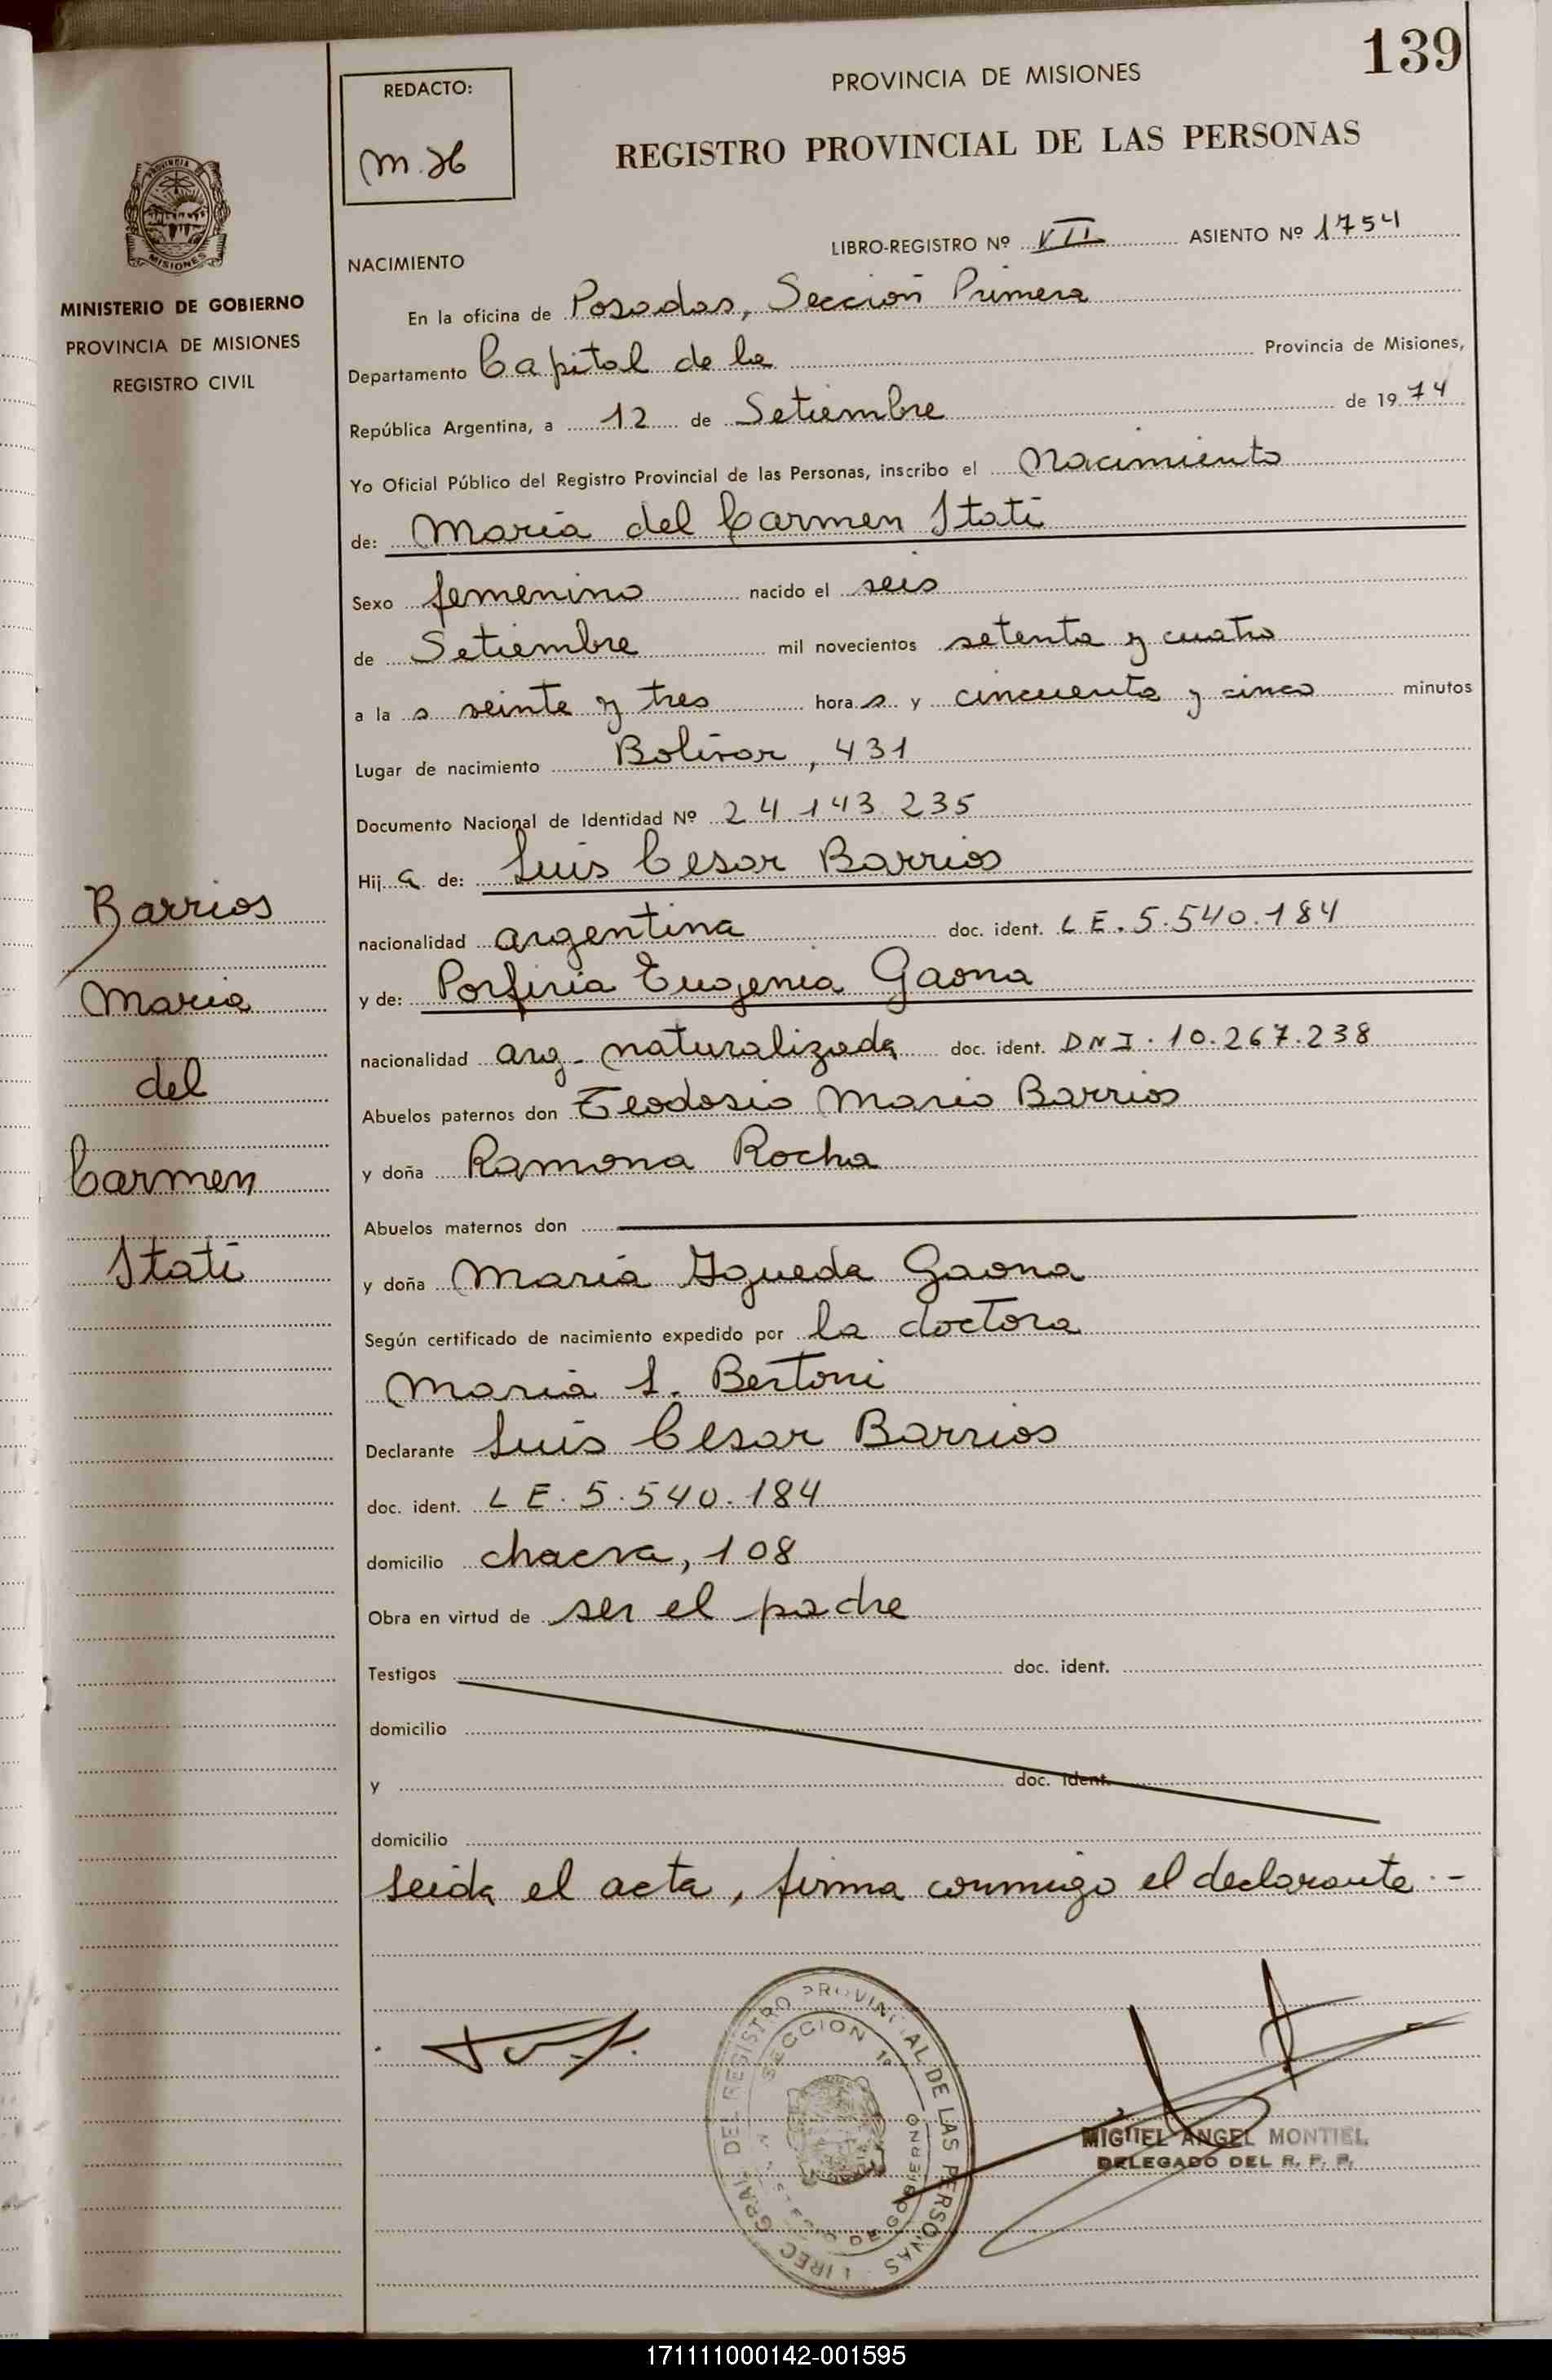 139
REDACTO:
M.H
PROVINCIA DE MISIONES
REGISTRO PROVINCIAL DE LAS PERSONAS
PROVINCIA MISIONES
MINISTERIO DE GOBIERNO
PROVINCIA DE MISIONES
REGISTRO CIVIL
LIBRO-REGISTRO Nº VII ASIENTO Nº 1754
NACIMIENTO
En la oficina de Posadas, Sección Primera
Departamento Capital de la Provincia de Misiones,
República Argentina, a 12 de Setiembre de 1974
Yo Oficial Público del Registro Provincial de las Personas, inscribo el Nacimiento
de: María del Carmen Itatí
Sexo femenino nacido el seis
de Setiembre mil novecientos setenta y cuatro
a la s veinte y tres hora s y cincuenta y cinco minutos
Lugar de nacimiento Bolívar, 431
Documento Nacional de Identidad Nº 24.143.235
Hij a de: Luis Cesar Barrios
nacionalidad argentina doc. ident. L E. 5.540.184
y de: Porfiria Eugenia Gaona
nacionalidad arg- naturalizada doc. ident. DNI. 10.267.238
Abuelos paternos don Teodosio Mario Barrios
y doña Ramona Rocha
Abuelos maternos don
y doña María Agueda Gaona
Según certificado de nacimiento expedido por la doctora
María L. Bertoni
Declarante Luis Cesar Barrios
doc. ident. L E. 5.540.184
domicilio chacra, 108
Obra en virtud de ser el padre
Testigos doc. ident.
domicilio
y doc. ident.
domicilio
Leida el acta, firma conmigo el declarante.-
Barrios
María
del
Carmen
Itatí
DIREC. GRAL. DEL REGISTRO PROVINCIAL DE LAS PERSONAS
SECCION 1ª
DE GOBIERNO
MIGUEL ANGEL MONTIEL
DELEGADO DEL R. P. P.
171111000142-001595